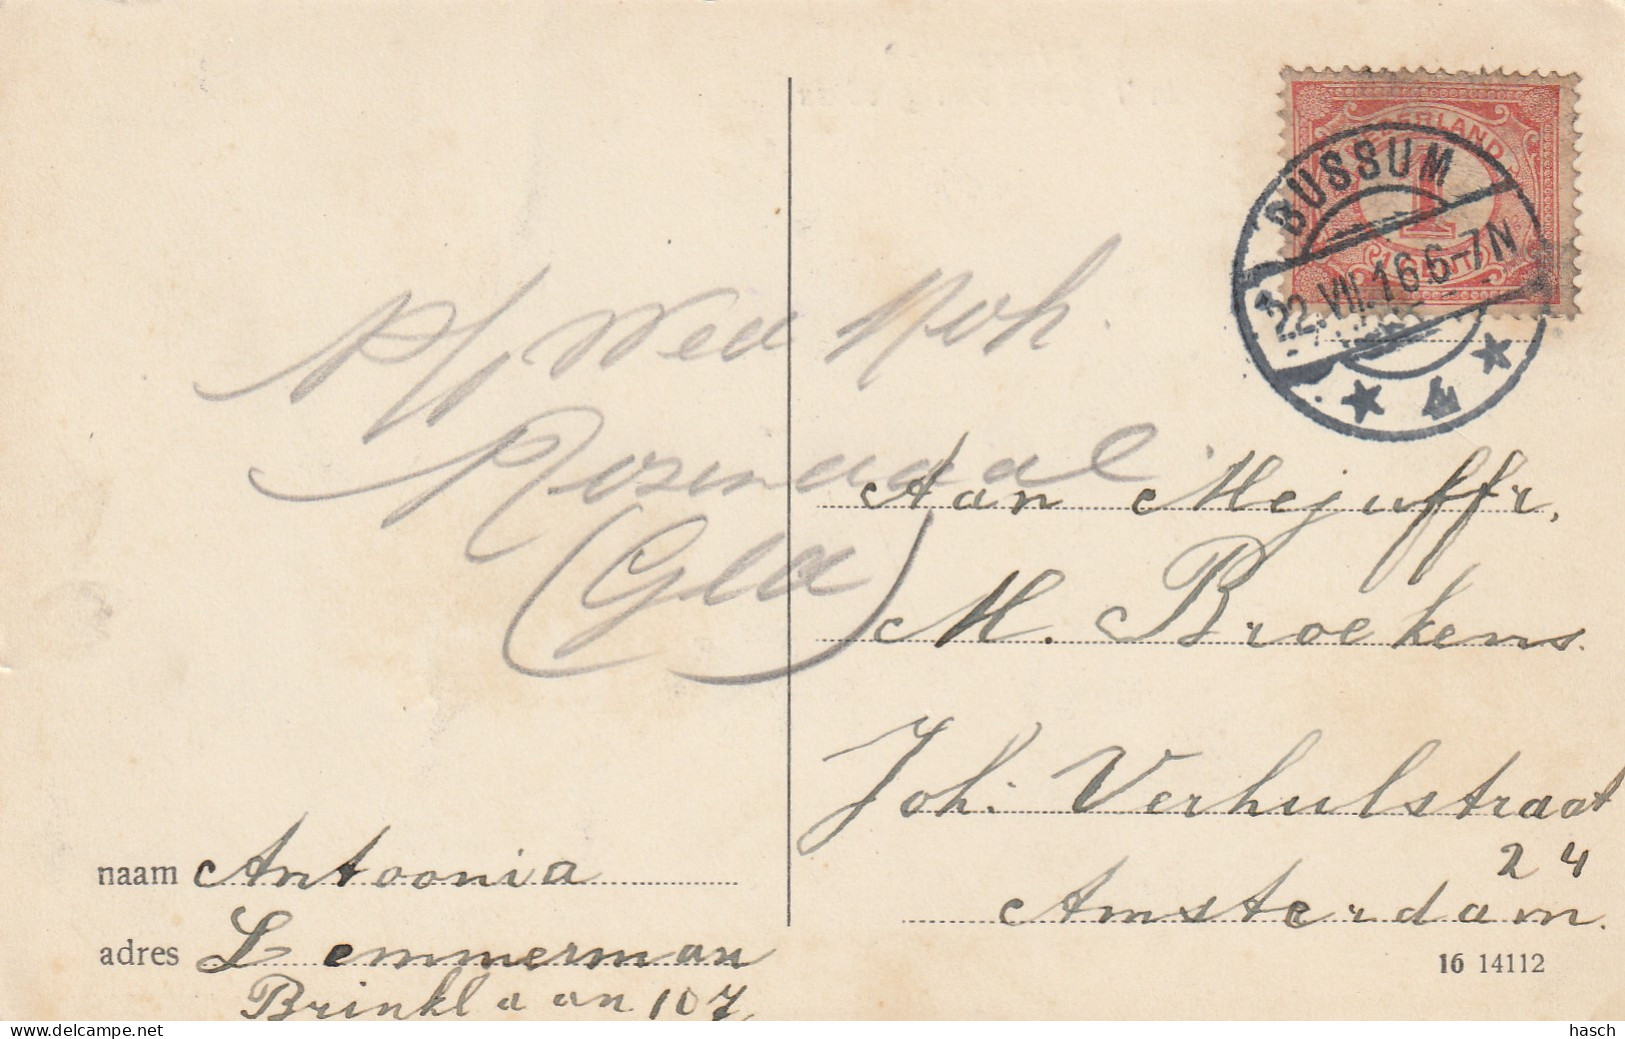 NEDERLAND
1
CENT
BUSSUM
22.VII.16.6-7N
4
p/a Wed Noh.
Rozendaal.
(Geld)
Aan Mejuffr,
M. Broekens.
Joh: Verhulstraat
24
Amsterdam.
naam Antoonia
adres Lemmerman
Brinklaan 107,
16 14112
delcampe.net
hasch